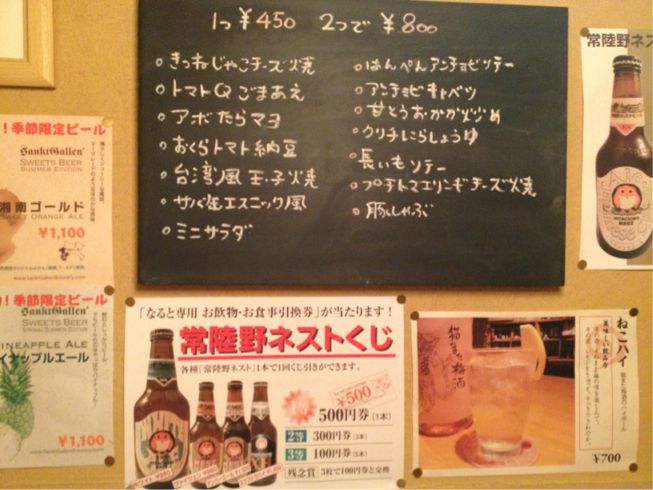 1つ ¥450 2つで ¥800
きつねじゃこチーズ焼
トマトQごまあえ
アボたらマヨ
おくらトマト納豆
台湾風玉子焼
サバ缶エスニック風
ミニサラダ
はんぺんアンチョビソテー
アンチョビキャベツ
甘とうおかか炒め
クリチにらしょうゆ
長いもソテー
プチトマエリンギチーズ焼
豚しゃぶ
!季節限定ビール
SanktGallen
SWEETS BEER
SUMMER EDITION
湘南ゴールド
SWEET ORANGE ALE
¥1,100
www.SanktGallenBrewery.com
!季節限定ビール
SanktGallen
SWEETS BEER
PINEAPPLE ALE
イナップルエール
¥1,100
www.SanktGallenBrewery.com
「なると専用 お飲物・お食事引換券」が当たります!
常陸野ネストくじ
各種「常陸野ネスト」1本で1回くじ引きができます。
¥500
500円券(1本)
2等 300円券(3本)
3等 100円券(5本)
残念賞 3枚で100円券と交換
常陸野ネス
HITACHINO
NEST
ねこハイ
猫また梅酒のハイボール
美味しい飲み方
梅酒
¥700